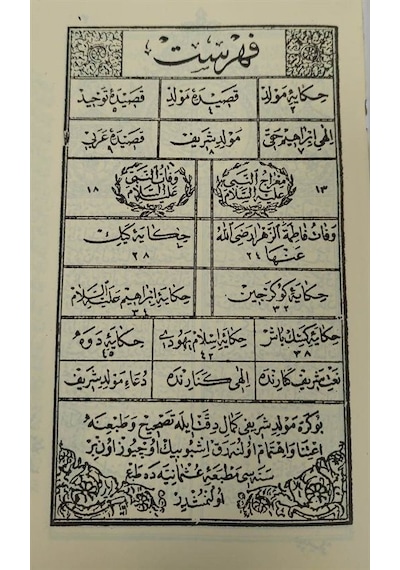 ١
فهرست
حكايۀ مولد ٣
قصيدۀ مولد ٤
قصيدۀ توحيد
الهى ابراهيم حقى ٧
مولد شريف ٨
قصيدۀ عربى ٩
معراج النبى عليه السلام ١٣
وفات النبى عليه السلام ١٨
وفات فاطمة الزهرا رضى الله عنها ٢٤
حكايۀ كيك ٢٨
حكايۀ كوكرجين ٣٢
حكايۀ ابراهيم عليه السلام ٣٤
حكايۀ كسيك باش ٣٨
حكايۀ اسلام يهودى ٤٢
حكايۀ دوه ٤٥
نعت شريف كنارنده
الهى كنارنده
دعاء مولد شريف
بوكره مولد شريفى كمال دقتله تصحيح و طبعنه
اعتنا و اهتمام اولنه رق اشبو بيك اوچيوز اون بر
سنه سى مطبعۀ عثمانيه ده طبع
اولنمشدر